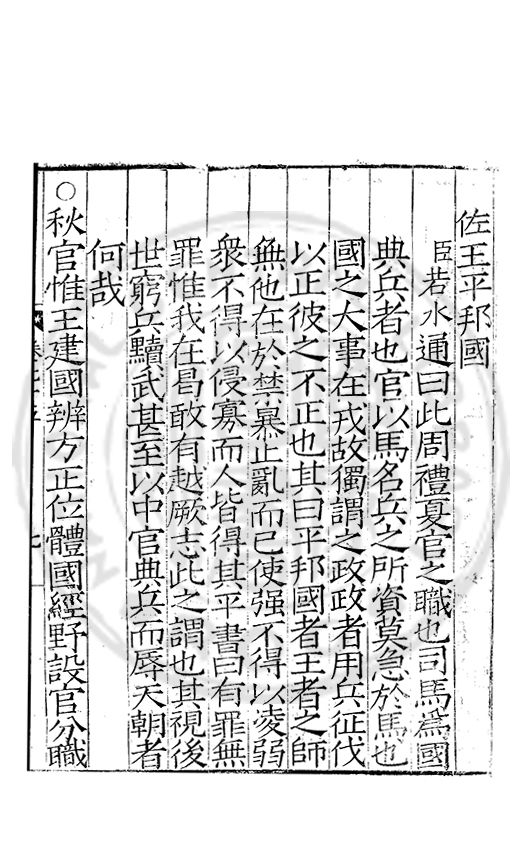 佐王平邦國
臣若水通曰此周禮夏官之職也司馬為國
典兵者也官以馬名兵之所資莫急於馬也
國之大事在戎故獨謂之政政者用兵征伐
以正彼之不正也其曰平邦國者王者之師
無他在於禁暴止亂而已使强不得以凌弱
衆不得以侵寡而人皆得其平書曰有罪無
罪惟我在曷敢有越厥志此之謂也其視後
世窮兵黷武甚至以中官典兵而辱天朝者
何哉
○秋官惟王建國辨方正位體國經野設官分職